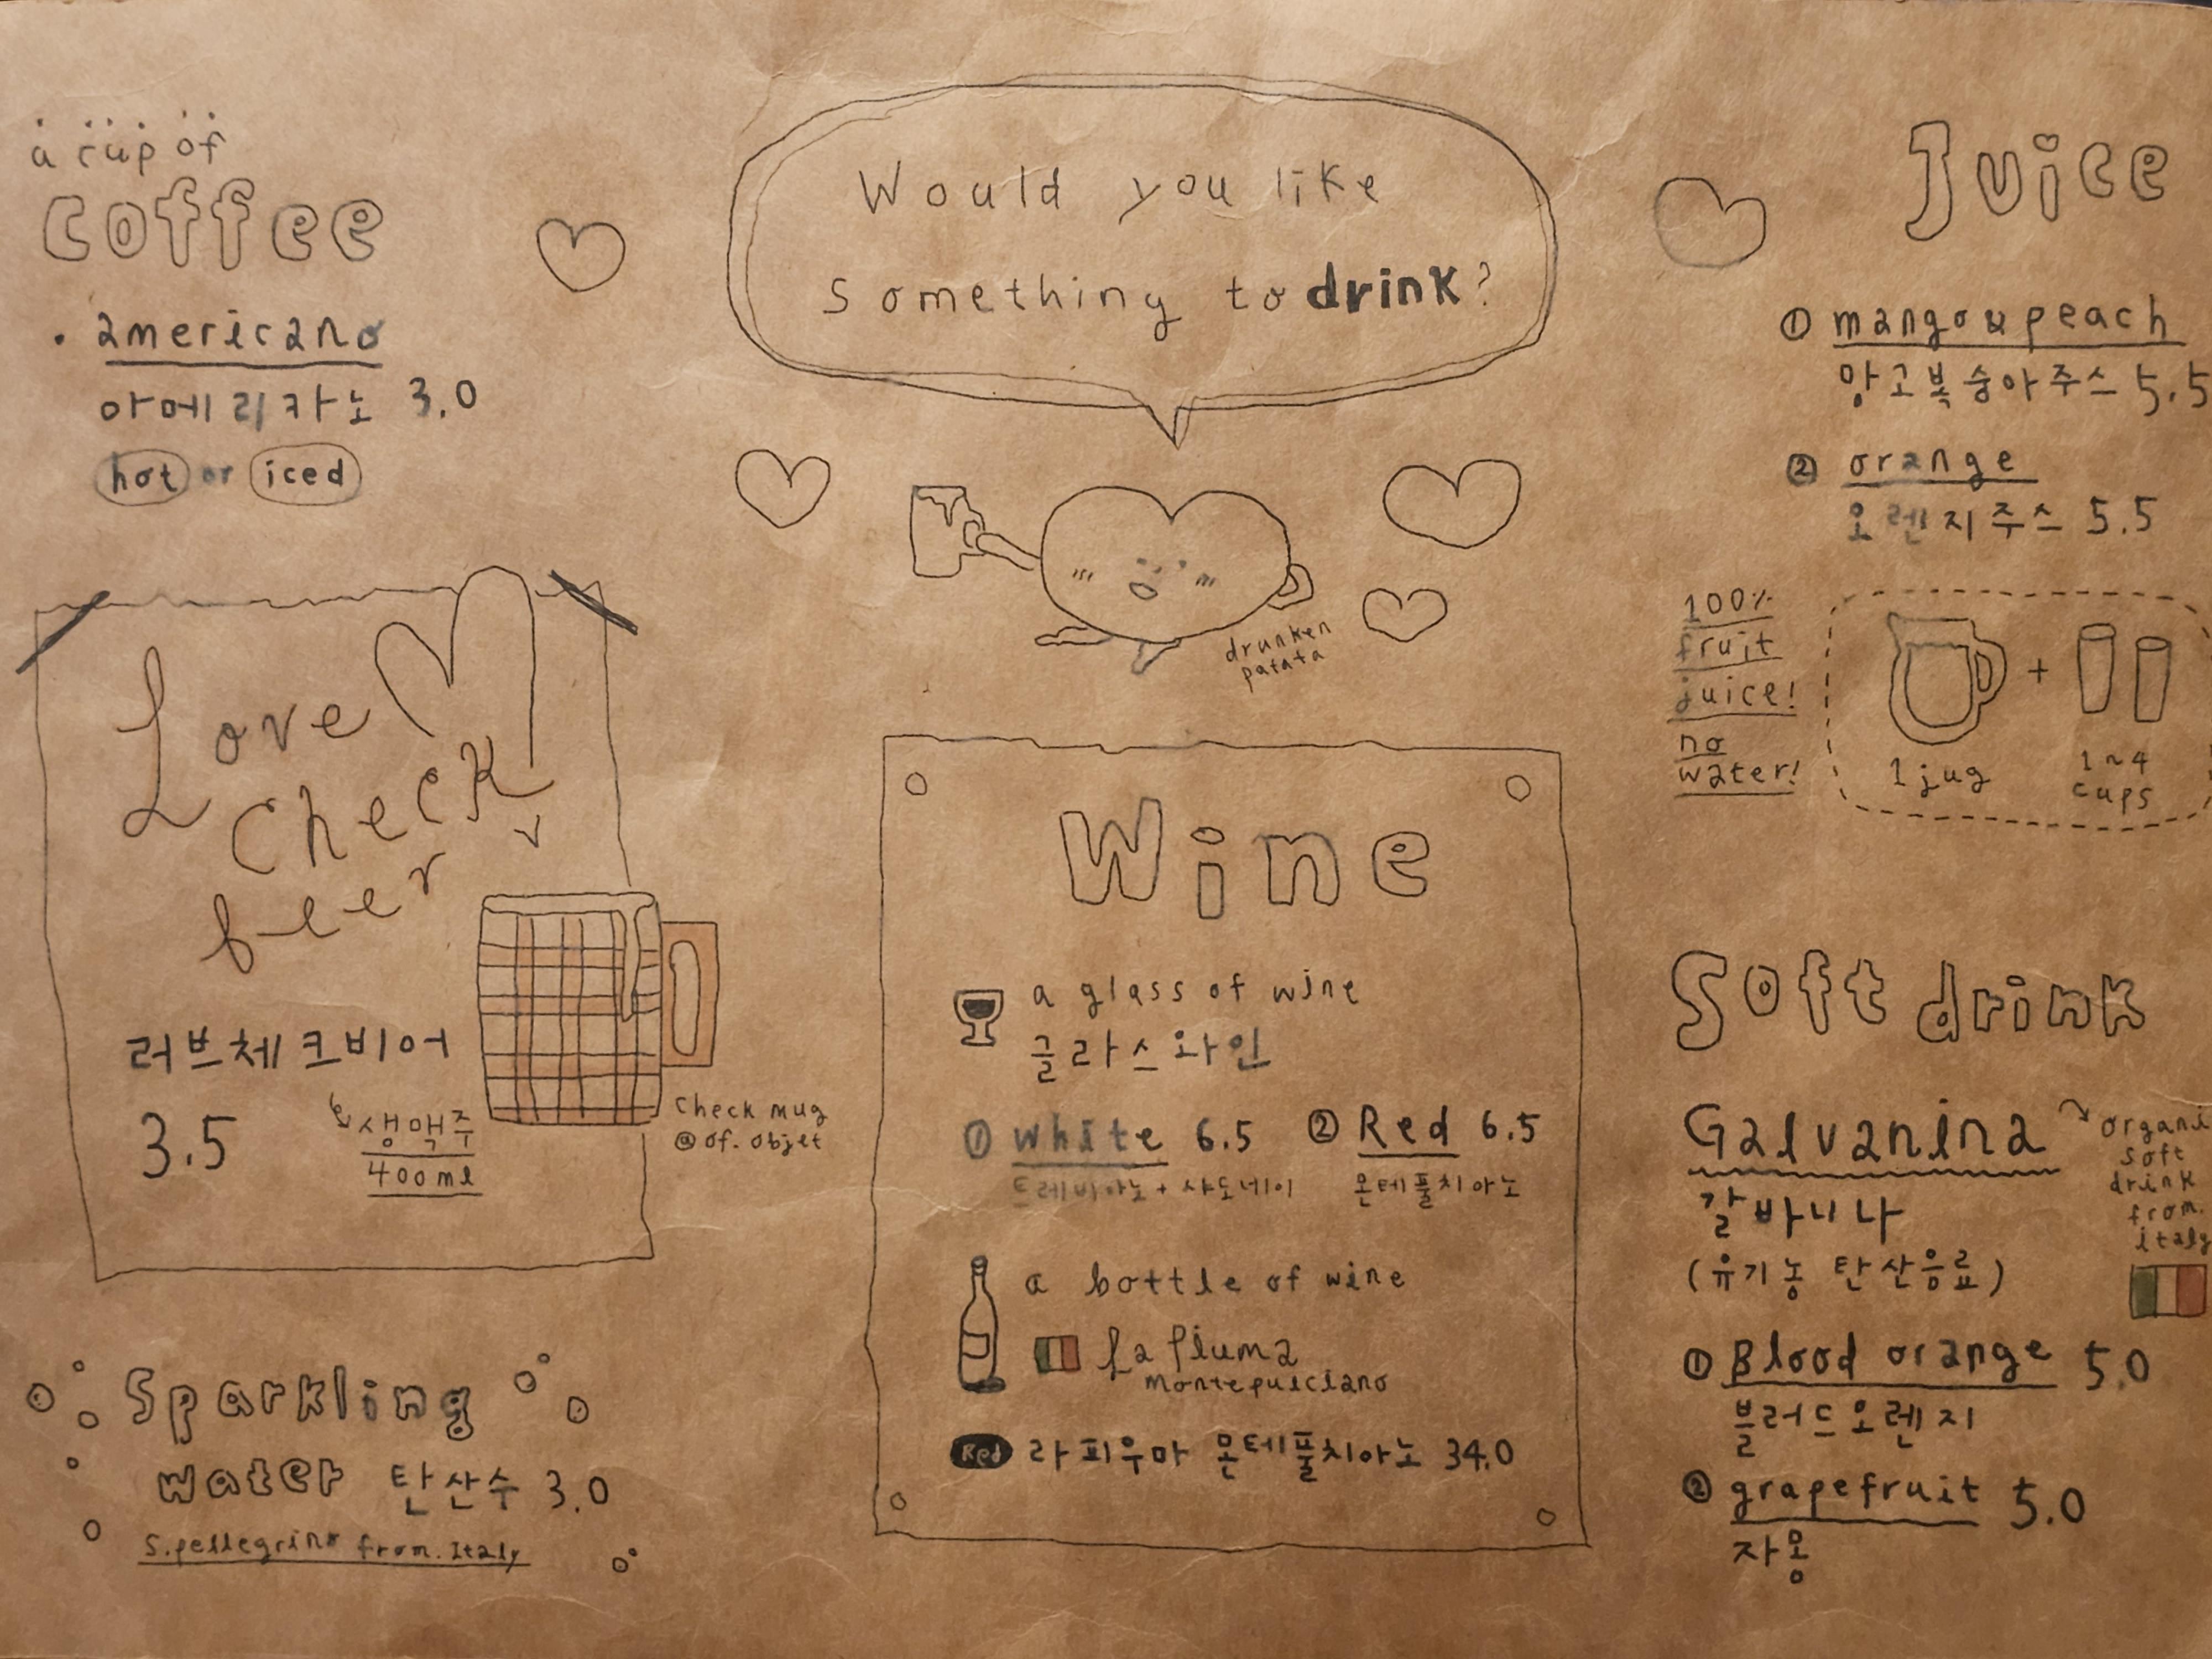 a cup of
coffee
· americano
아메리카노 3.0
hot or iced
Would you like
something to drink?
drunken
patata
Juice
① mango & peach
망고복숭아주스 5.5
② orange
오렌지주스 5.5
100%
fruit
juice!
no
water!
+
1 jug
1~4
cups
Love
check
beer
러브체크비어
3.5
생맥주
400ml
check mug
@ of. objet
Sparkling
water 탄산수 3.0
S.pellegrino from. Italy
Wine
a glass of wine
글라스와인
① White 6.5
트레비아노 + 샤도네이
② Red 6.5
몬테풀치아노
a bottle of wine
La fiuma
montepulciano
Red 라피우마 몬테풀치아노 34.0
Soft drink
Galvanina
갈바니나
(유기농 탄산음료)
organi
soft
drink
from.
italy
① Blood orange 5.0
블러드오렌지
② grapefruit 5.0
자몽